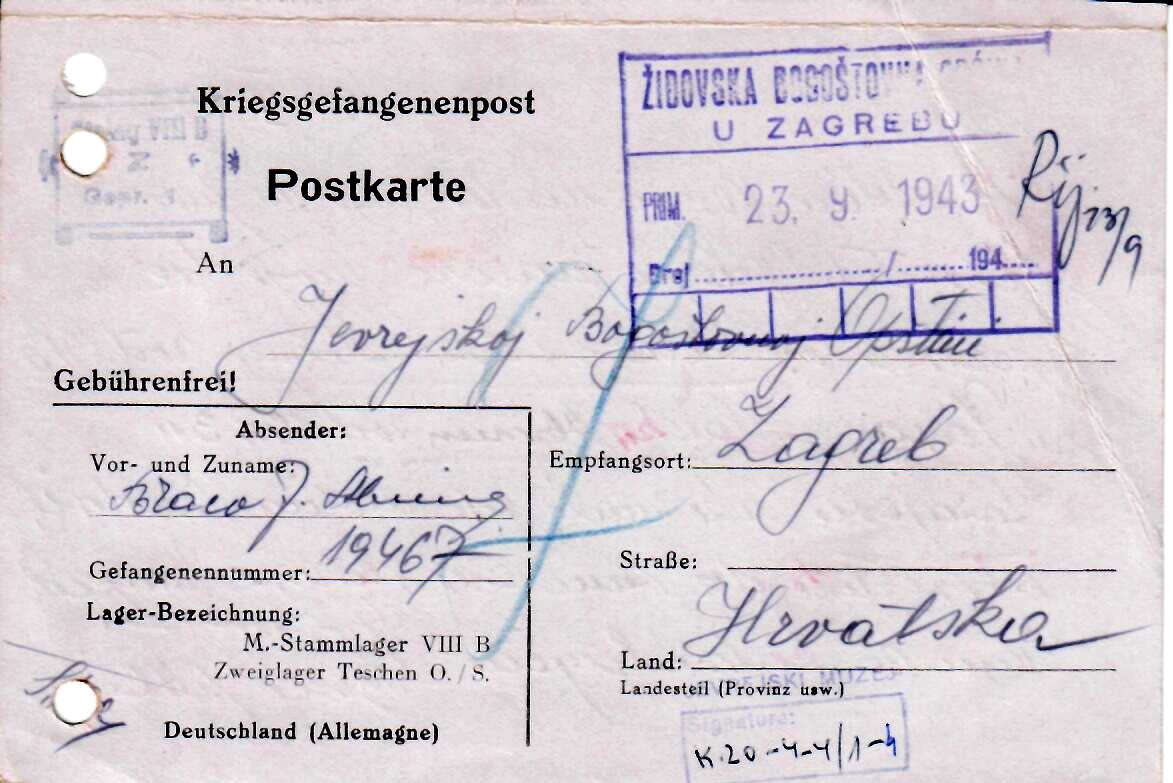 Kriegsgefangenenpost
Postkarte
ŽIDOVSKA BOGOŠTOVNA
U ZAGREBU
PRIM. 23. 9. 1943
Broj / 194
Rij. 23/9
VIII B
Gepr. 1
An
Jevrejskoj Bogoštovnoj Opštini
Gebührenfrei!
Absender:
Vor- und Zuname:
Braco J.
Gefangenennummer: 19467
Lager-Bezeichnung:
M.-Stammlager VIII B
Zweiglager Teschen O./S.
Deutschland (Allemagne)
Empfangsort: Zagreb
Straße:
Land: Hrvatska
Landesteil (Provinz usw.)
JEVREJSKI MUZEJ
Signatura:
K.20-4-4/1-4